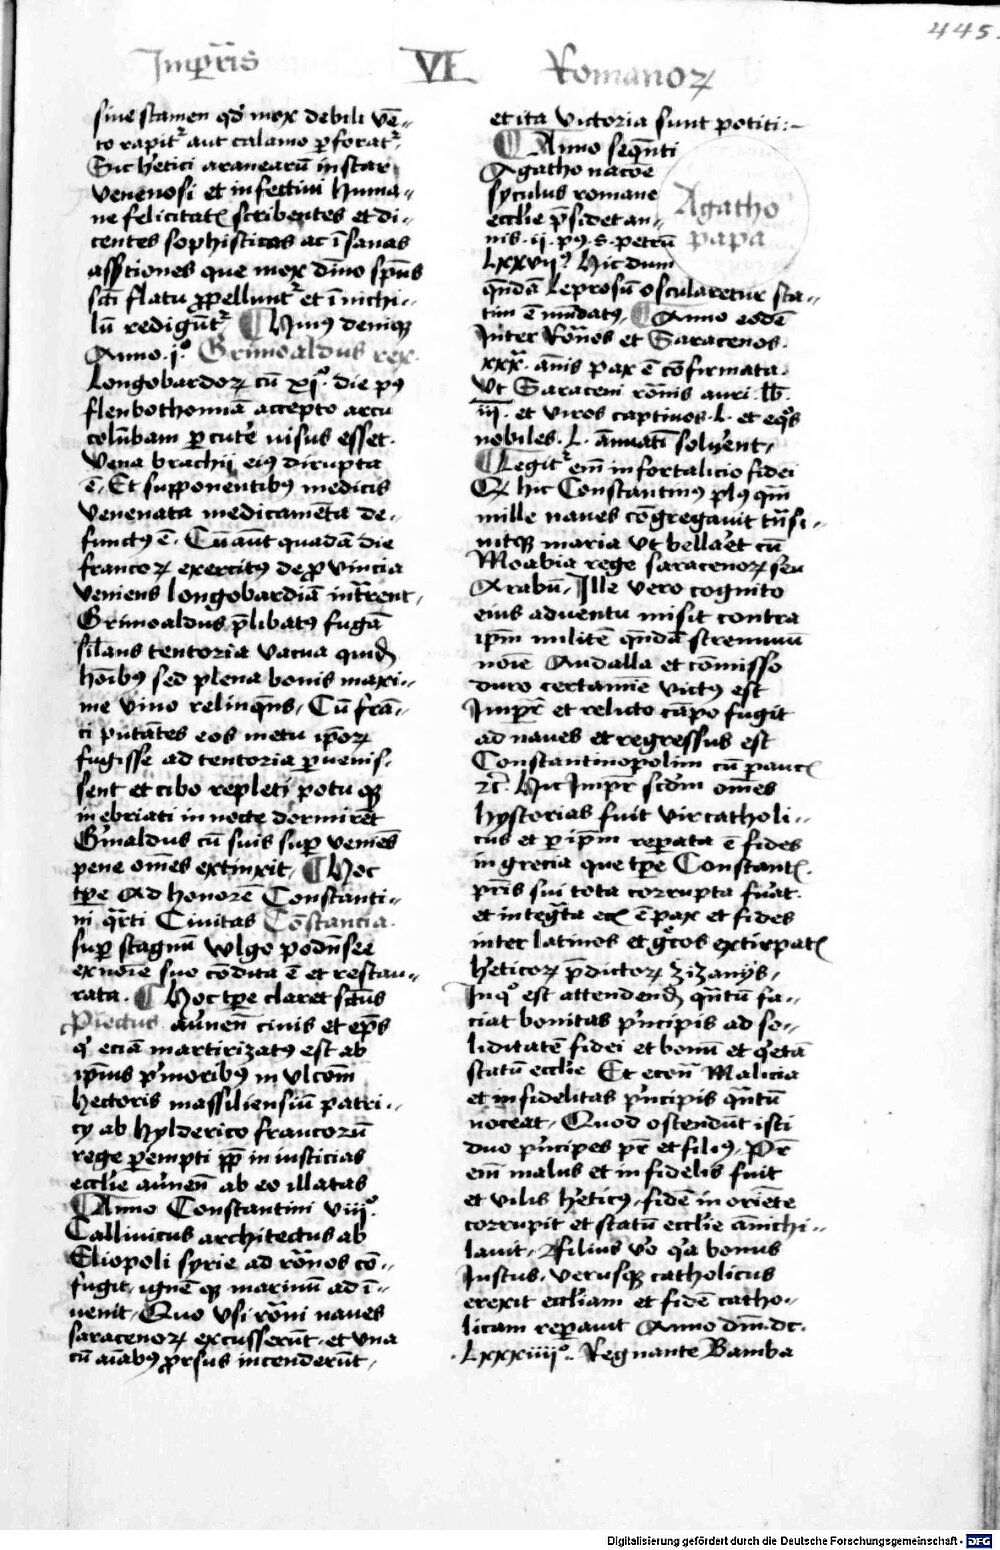 445.
Imp̅r̅is VI Romanoꝝ
siue stamen qd̕ mox debili ve̅-
to rapitᷣ aut calamo ꝑforatᷣ.
Sic h̕etici aranearu̅ instar
venenosi et infectiui huma-
ne felicitatꝭ scribentes et di-
centes sophisticas ac i̅sanas
asst̕iones que mox di̅no sp̅us
sc̅i flatu ꝓpelluntᷣ et i̅ nichi-
lu̅ redigu̅tᷣ. ¶ Huiꝰ deniqꝫ
Anno .jº. Grimoaldus rex
Longobardoꝝ cu̅ xjº. die pꝰ
flenbothomia̅ accepto arcu
colu̅bam ꝑcut̕e uisus esset.
Vena brachij eiꝰ dirupta
e̅. Et supponentibꝰ medicis
venenata medicame̅ta de-
functꝰ e̅. Cu̅ aut̅ quada̅ die
francoꝝ exercitꝰ de ꝓvincia
veniens longobardia̅ intr̅ent,
Grimoaldus p̅libatꝰ fuga̅
sil̅ans tentoria vacua quid̕
ho̅ibꝰ sed plena bonis maxi-
me vino relinq̅ns, Cu̅ fra̅-
ci puta̅tes eos metu ip̅oꝝ
fugisse ad tentoria ꝑuenis-
sent et cibo repleti potu qꝫ
inebriati in nocte dormire̅t
G̕maldus cu̅ suis suꝑ venie̅s
pene om̅es extinxit, ¶ Hoc
tp̅e ad honore̅ Constanti-
ni q̅rti Ciuitas Constancia
suꝑ stagnu̅ wlgo podn̅see
ex no̅ie suo co̅dita e̅ et restau-
rata. ¶ Hoc tp̅e claret sc̅tus
Priectus au̕nen̅ ciuis et ep̅s
q̕ ecia̅ martirizatꝰ est ab
ip̅ius p̕moribꝰ in vlcom̅
hectoris massiliensiu̅ patri-
cy ab hylderico francoru̅
rege ꝑempti ꝓp̅ iniusticias
eccl̕ie au̕nen̅ ab eo illatas
¶ Anno Constantini viijº.
Callinicus architectus ab
Eliopoli syrie ad ro̅nos co̅-
fugit, igne̅ qꝫ marinu̅ ad i̅-
uenit, Quo vsi ro̅ni naues
saracenoꝝ excusseru̅t, et vna
cu̅ ai̅abꝰ ꝓrsus incenderu̅t,
et ita victoria sunt potiti:-
¶ Anno seque̅nti
Agatho nac̅oe
syculus romane
eccl̕ie p̅sidet an-
nis .ij. pꝰ .s. petru̅
Lxxvijº. Hic dum
Agatho
papa
que̅da̅ leprosu̅ oscularetur sta-
tim e̅ mu̅datꝰ. ¶ Anno eode̅
Inter Ro̅nos et Saracenos
xxx. a̅nis pax e̅ co̅firmata.
Vt Saraceni ro̅nis auri .lb̅.
iij. et viros captiuos .L. et eq̕s
nobiles .L. a̅nuati̅ solu̕ent,
¶ Legitᷣ em̅ in fortalicio fidei
Qꝫ hic Constantinꝰ plꝰ qm̅
mille naues co̅gregauit tn̅si-
uitqꝫ maria vt bella̕et cu̅
Moabia rege saracenoꝝ seu
Arabu̅, Ille vero cognito
eius aduentu misit contra
ip̅m milite̅ que̅da̅ strenuu̅
no̅ie Audalla et co̅misso
duro certami̅e victꝰ est
Imp̅r et reluto ca̅po fugit
ad naues et regressus est
Constantinopolim cu̅ paucꝭ
ꝛc̅. Hic Imp̅r sc̅dm om̅es
hystorias fuit vir catholi-
cus et ꝑ ip̅m reꝑata e̅ fides
in grecia que tp̅e Constantꝭ.
pr̅is sui tota corrupta fu̕at.
et integ̅ta eꝭ e̅ pax et fides
inter latinos et g̕cos extirpatꝭ
h̕eticoꝝ p̅dictoꝝ zizanijs,
In qº est attendend̕ qn̅tu̅ fa-
ciat bonitas p̕ncipis ad so-
liditate̅ fidei et bonu̅ et q̕eta̅
statu̅ eccl̕ie Et econ̅ Malicia
et infidelitas p̕ncipis qn̅tu̅
noceat, Quod ostendu̅t isti
duo p̕ncipes pr̅ et filiꝰ, Pr̅
em̅ malus et infidelis fuit
et vilis h̕eticꝰ, fide̅ in orie̅te
corrupit et statu̅ eccl̕ie a̅nichi-
lauit, Filiꝰ v̕o q̕a bonus
Iustus, verusqꝫ catholicus
erexit eccl̕iam et fide̅ catho-
licam reꝑauit Anno dm̅. dc.
Lxxxiiijº. Regnante Bamba
Digitalisierung gefördert durch die Deutsche Forschungsgemeinschaft - DFG